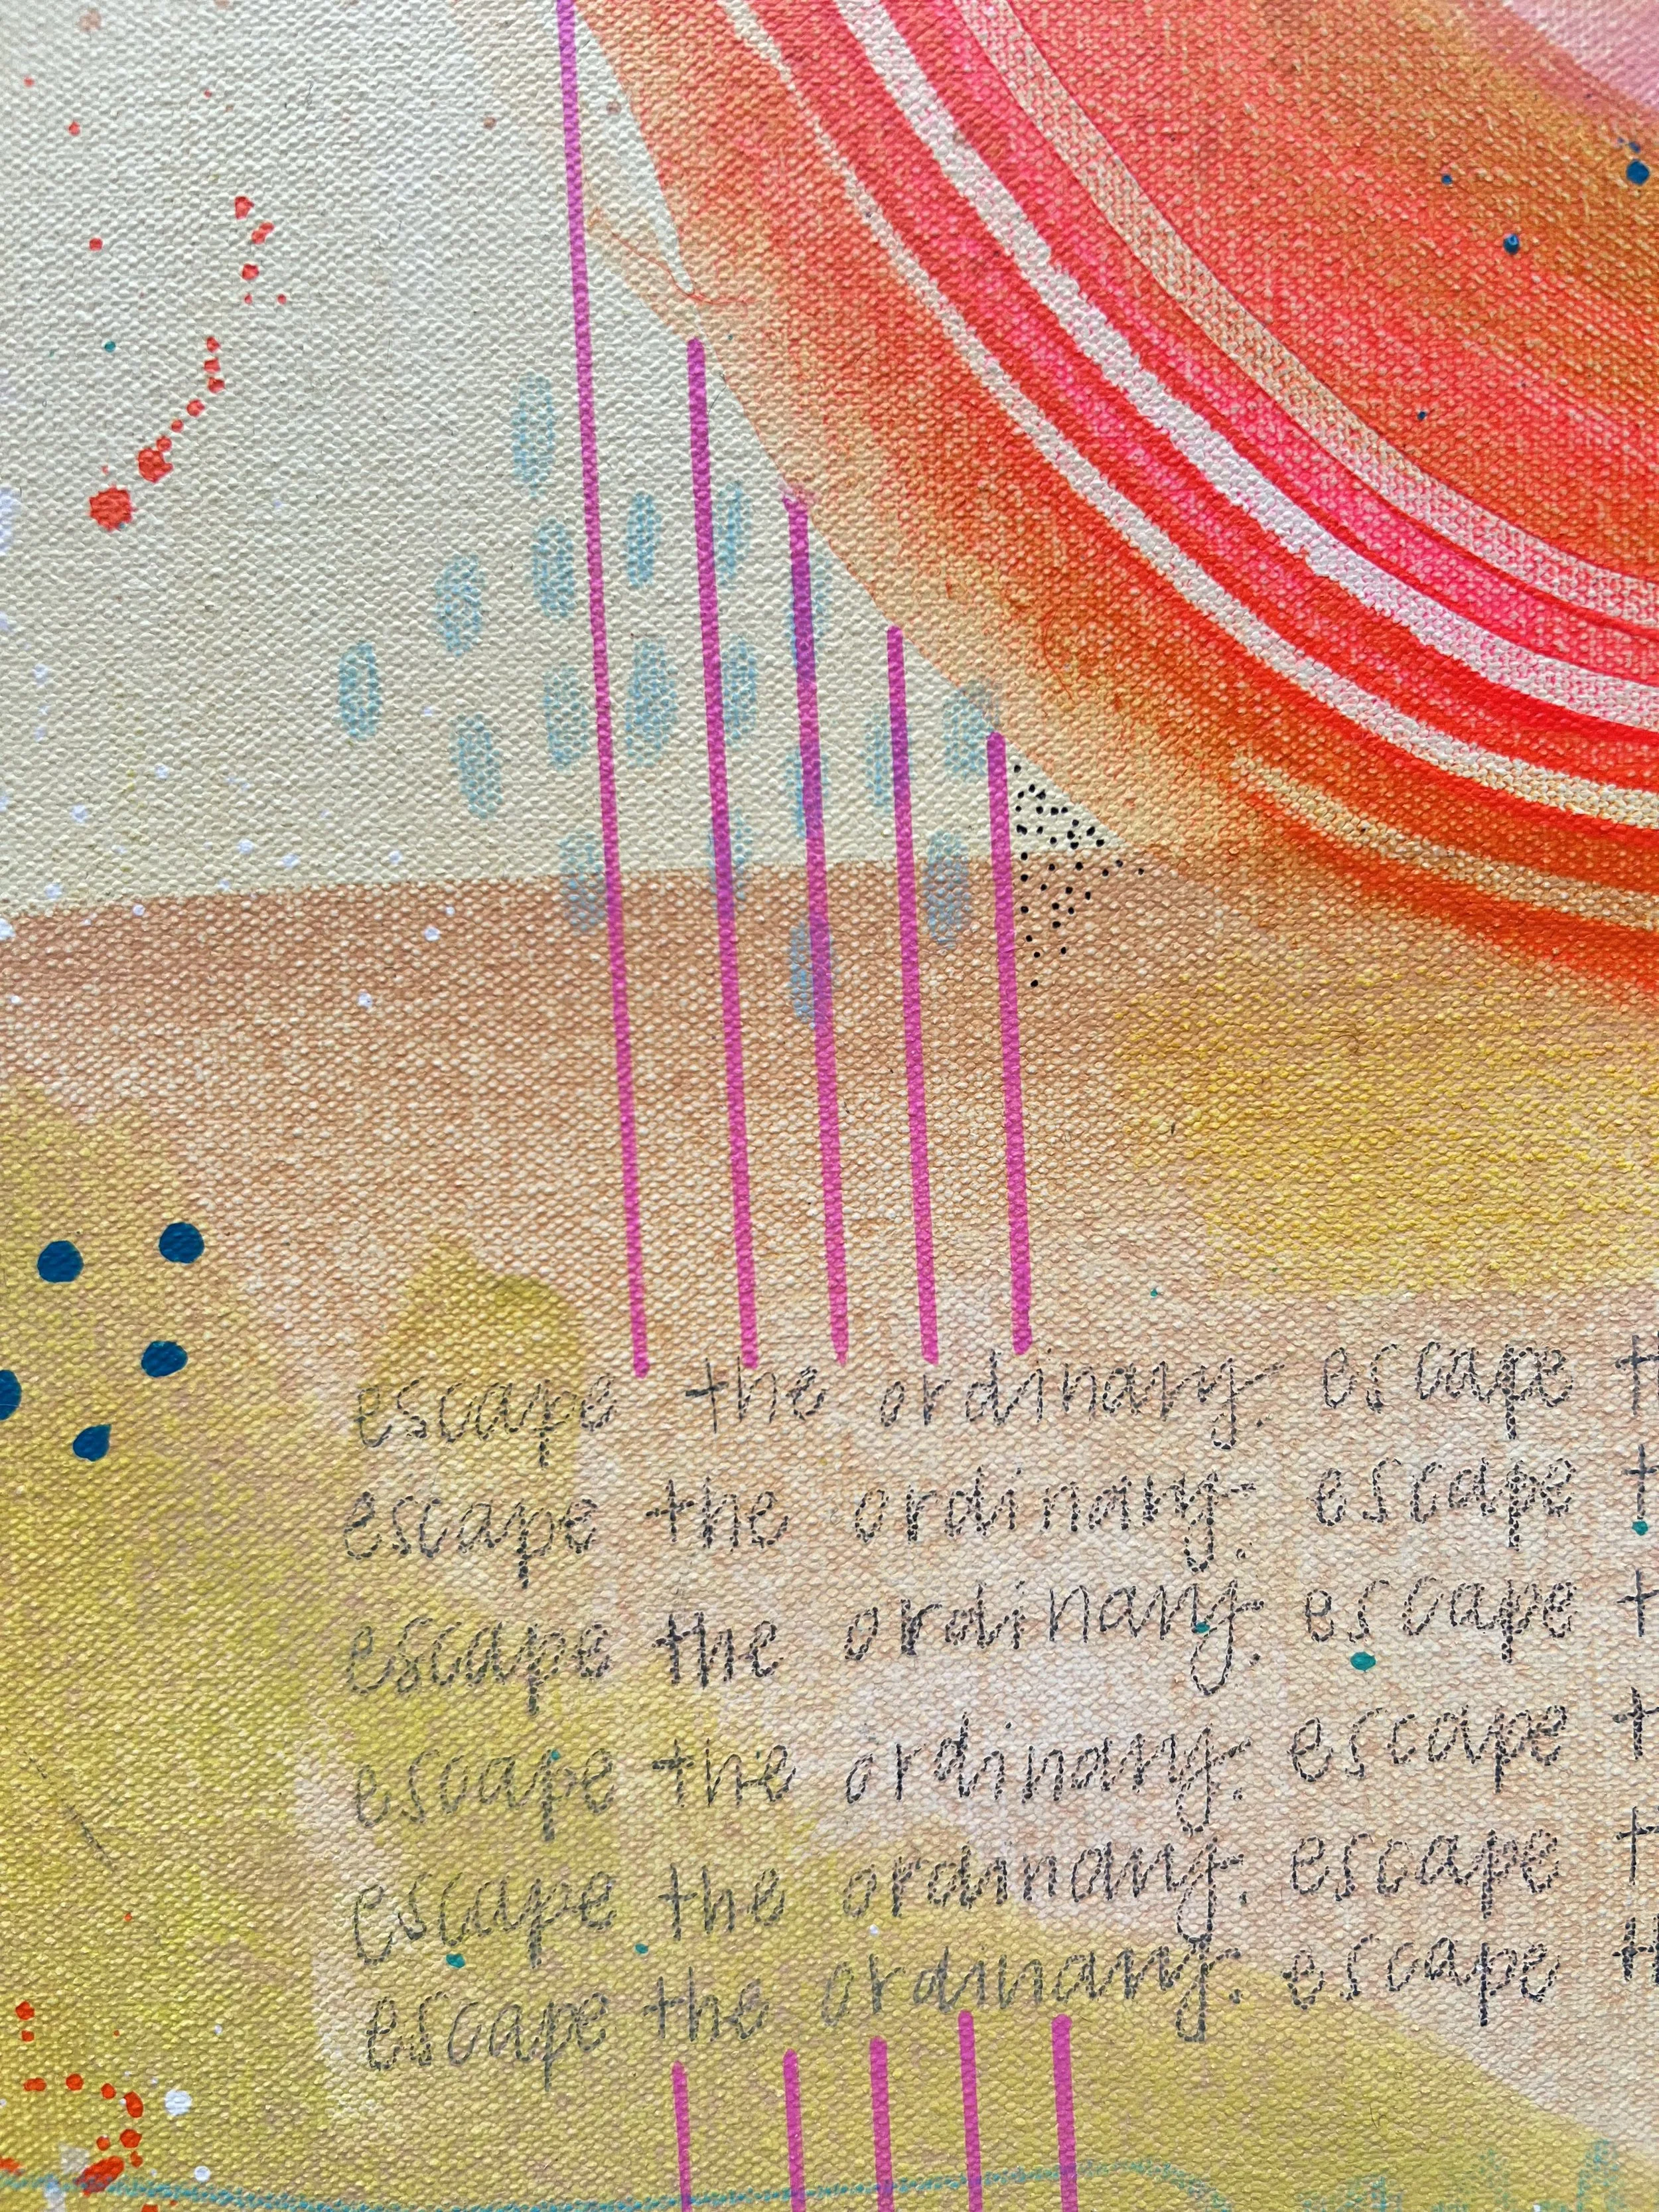 escape the ordinary. escape t
escape the ordinary. escape t
escape the ordinary. escape t
escape the ordinary. escape t
escape the ordinary. escape t
escape the ordinary. escape th